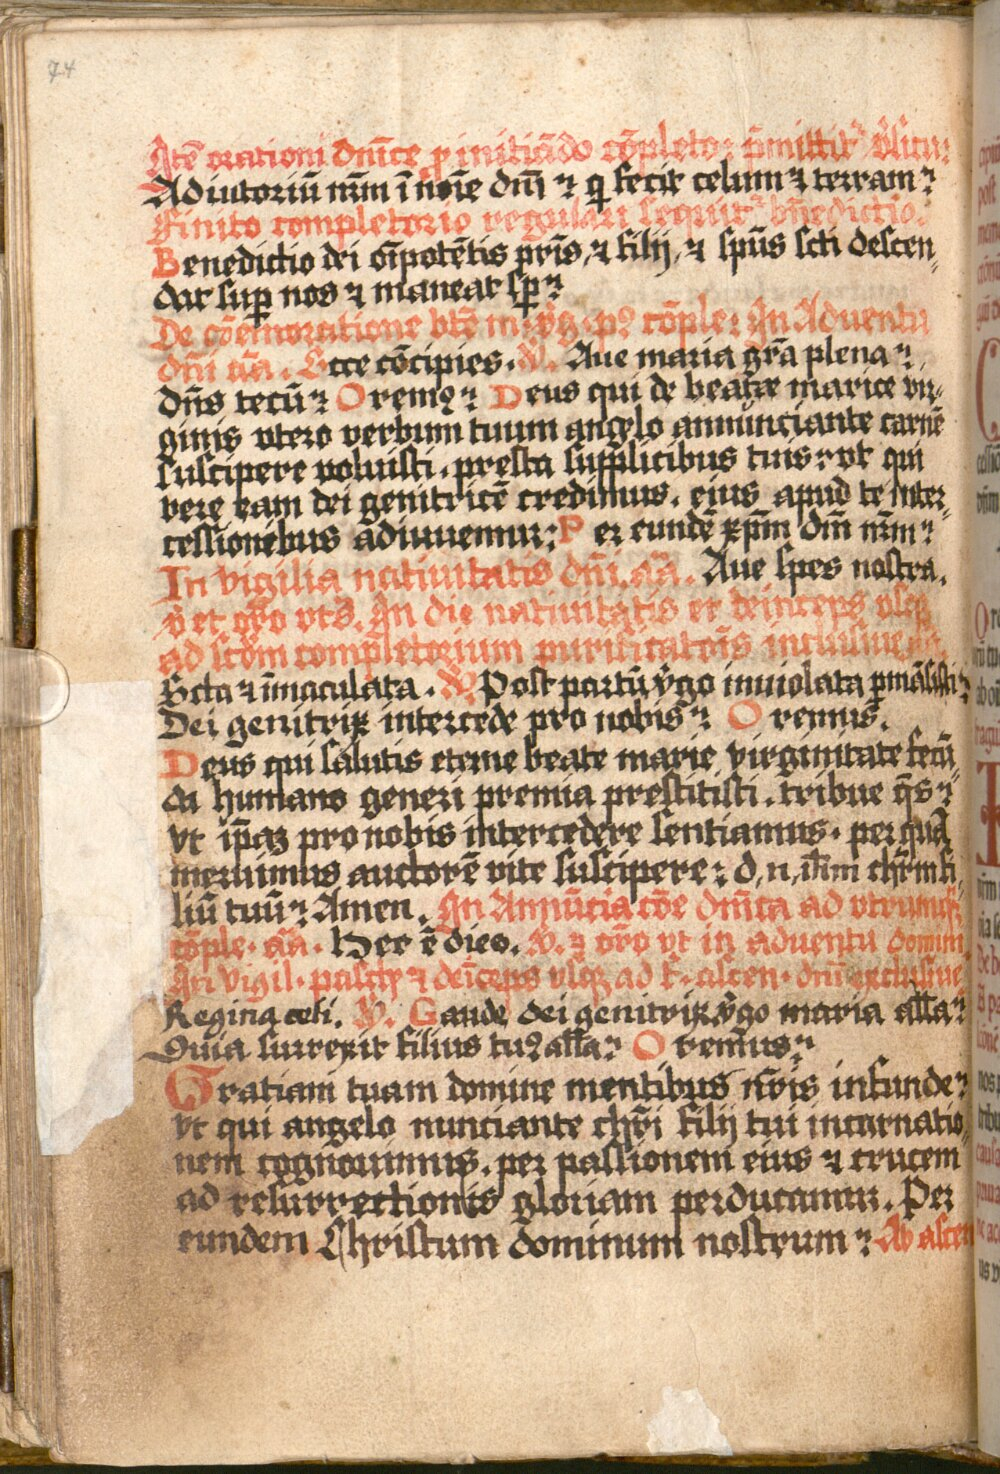 74
Itē orationi dn̄ice ꝓ initiādo cōpleto: p̄mittitᷣ
Adiutoriū nrm̄ ī noīe dn̄i ⁊ q̄ fecit celum ⁊ terram
Finito completorio regulari sequitᷣ bn̄edictio.
Benedictio dei oīpotētis pr̄is, ⁊ filij, ⁊ sp̄us scti descen„
dat sup̄ nos ⁊ maneat sp̄
De cōmemoratione btē m. v̄g. pꝰ cōple: In Aduentu
dn̄i aā. Ecce cōcipies. ℣. Aue maria gr̄a plena
dn̄s tecū Oremꝰ Deus qui de beatæ marie vir„
ginis vtero verbum tuum angelo annunciante carnē
suscipere voluisti. presta supplicibus tuis: vt qui
vere eam dei genitricē credimus. eius apud te inter„
cessionibus adiuuemur: Per eundē xp̄m dm̄ nrm̄
In vigilia natiuitatis dn̄i. aā. Aue spes nostra.
v̄ et oro vts. In die natiuitatis et deinceps vsqꝫ
ad scdm completorium purificatōis inclusiue aā.
Scta ⁊ īmaculata. ℣. Post partū v̄go inuiolata ꝑmāsisti
Dei genitrix intercede pro nobis Oremus.
Deus qui salutis eterne beate marie virginitate fecū„
da humano generi premia prestitisti. tribue q̄s
vt ip̄aꝫ pro nobis intercedere sentiamus. per quā
meruimus auctorē vite suscipere: d, n, ih̄m chr̄m fi„
liū tuū Amen. In Annūciatōe dn̄ica ad vtrumqꝫ
cōple. aā. Hec ē dies. ℣. ⁊ oro vt in aduentu domini
In vigil. pasche ⁊ deīceps vsqꝫ ad f. ascen. dn̄i exclusiue
Regina celi. ℣. Gaude dei genitrix v̄go maria alla
Quia surrexit filius tuꝰ alla Oremus
Gratiam tuam domine mentibus nr̄is infunde
vt qui angelo nunciante chr̄i filij tui incarnatio„
nem cognouimus. per passionem eius ⁊ crucem
ad resurrectionis gloriam perducamur. Per
eundem Christum dominum nostrum Ab ascen